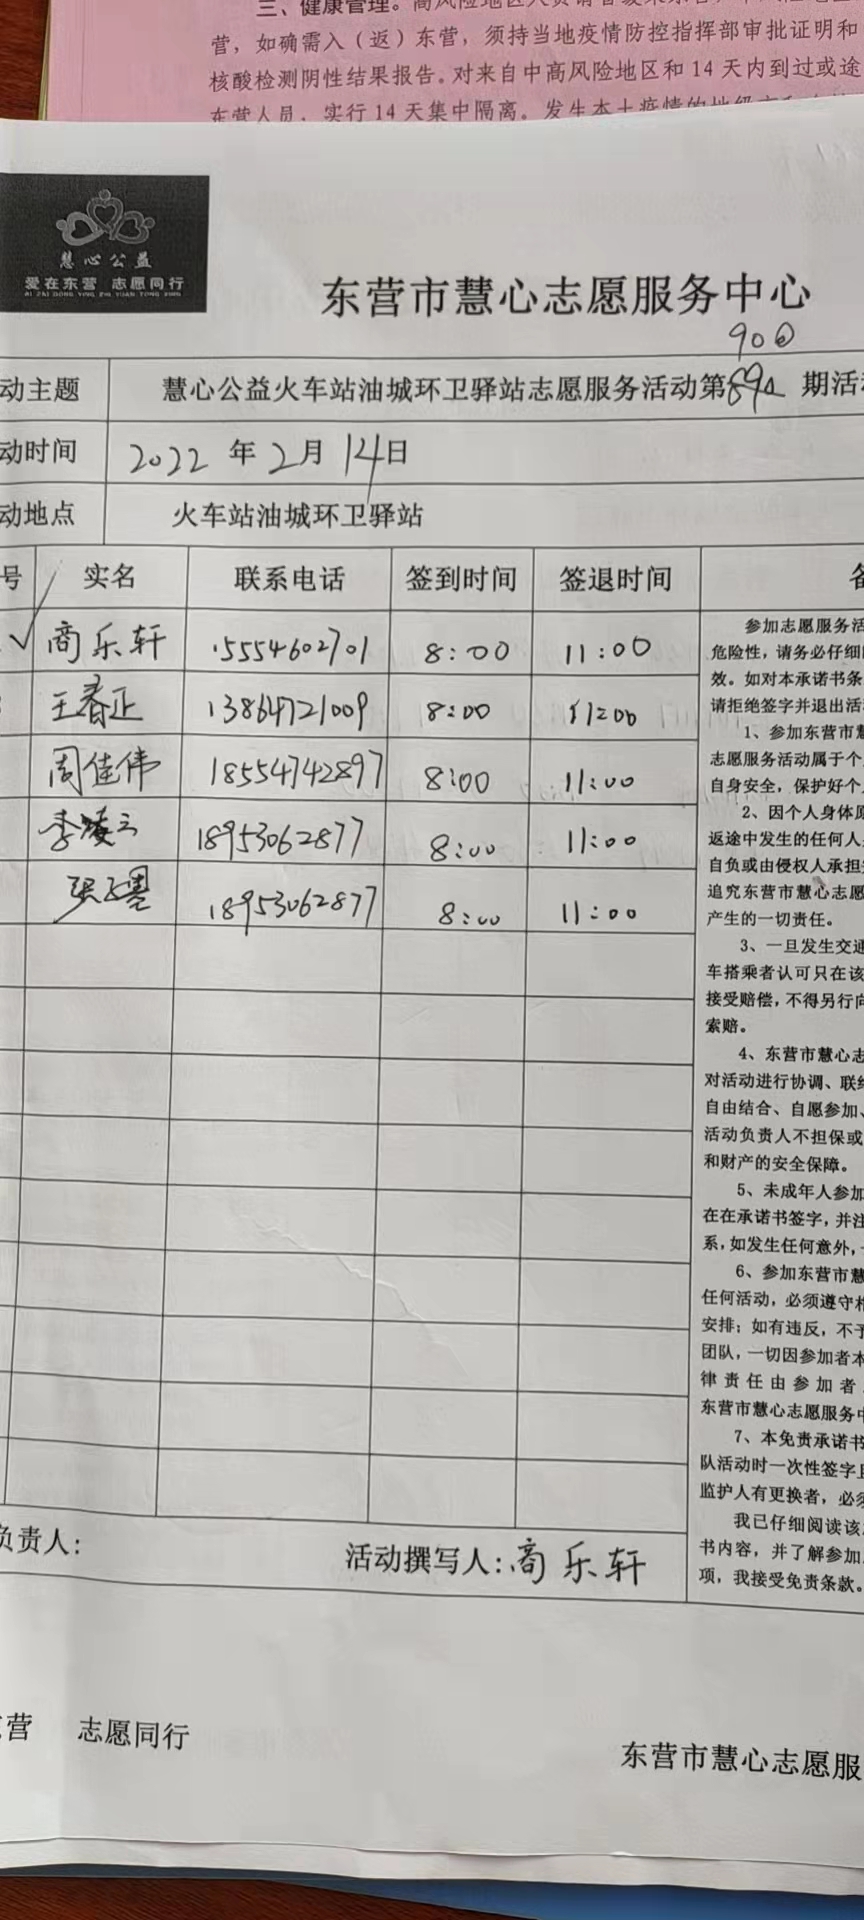 三、健康管理。高风险地区人员请
营，如确需入（返）东营，须持当地疫情防控指挥部审批证明和
核酸检测阴性结果报告。对来自中高风险地区和14天内到过或途
东营人员，实行14天集中隔离。发生本土疫情的地级
慧心公益
爱在东营 志愿同行
AI ZAI DONG YING ZHI YUAN TONG XING
东营市慧心志愿服务中心
900
动主题 慧心公益火车站油城环卫驿站志愿服务活动第 期活动
动时间 2022年2月14日
动地点 火车站油城环卫驿站
号 实名 联系电话 签到时间 签退时间 备
商乐轩 15554602701 8:00 11:00
王春正 13864721009 8:00 11:00
周佳伟 18554742897 8:00 11:00
李凌云 18953062877 8:00 11:00
张 18953062877 8:00 11:00
参加志愿服务活
危险性，请务必仔细阅
效。如对本承诺书条
请拒绝签字并退出活动
1、参加东营市慧
志愿服务活动属于个人
自身安全，保护好个人
2、因个人身体原
返途中发生的任何人身
自负或由侵权人承担
追究东营市慧心志愿
产生的一切责任。
3、一旦发生交通
车搭乘者认可只在该
接受赔偿，不得另行向
索赔。
4、东营市慧心志
对活动进行协调、联络
自由结合、自愿参加、
活动负责人不担保或
和财产的安全保障。
5、未成年人参加
在在承诺书签字，并注
系，如发生任何意外，
6、参加东营市慧
任何活动，必须遵守相
安排；如有违反，不予
团队，一切因参加者本
律责任由参加者
东营市慧心志愿服务中
7、本免责承诺书
队活动时一次性签字且
监护人有更换者，必须
我已仔细阅读该
书内容，并了解参加
项，我接受免责条款。
负责人： 活动撰写人：商乐轩
东营 志愿同行
东营市慧心志愿服